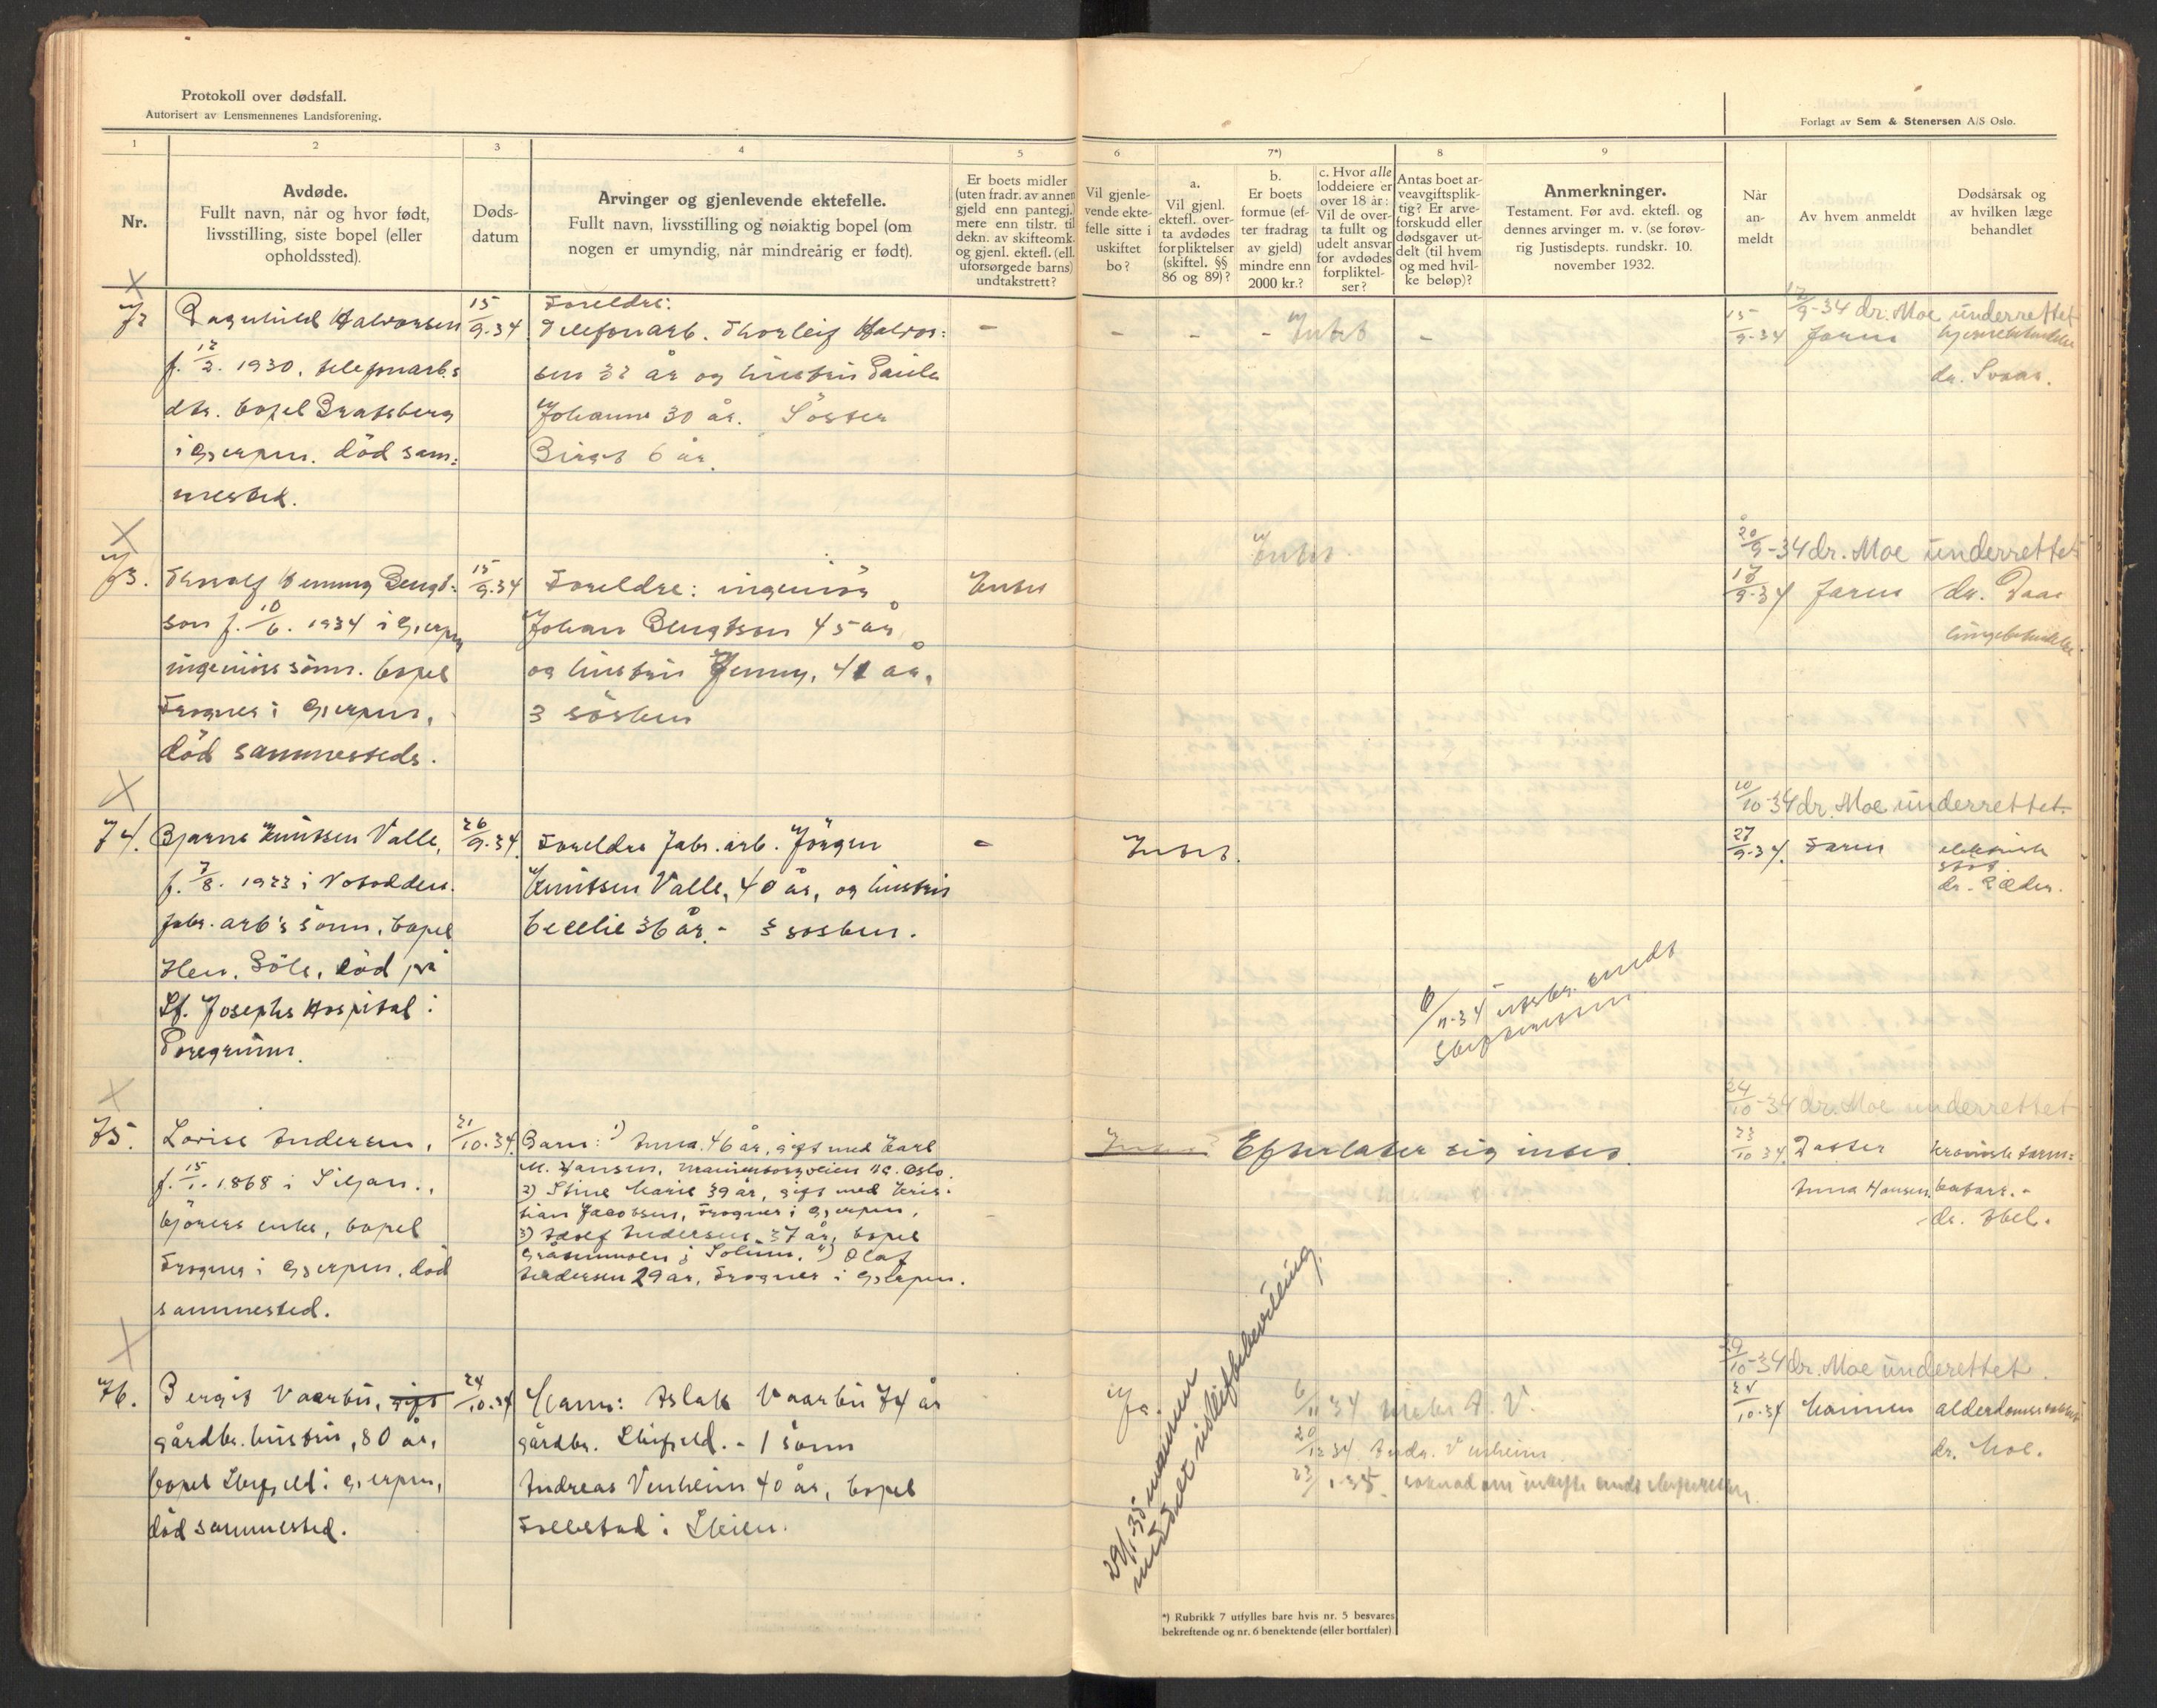 Protokoll over dødsfall.
Autorisert av Lensmennenes Landsforening.
Forlagt av Sem & Stenersen A/S Oslo.
1
2
3
4
5
6
7*)
8
9
Nr.
Avdøde.
Fullt navn, når og hvor født,
livsstilling, siste bopel (eller
opholdssted).
Døds-
datum
Arvinger og gjenlevende ektefelle.
Fullt navn, livsstilling og nøiaktig bopel (om
nogen er umyndig, når mindreårig er født).
Er boets midler
(uten fradr. av annen
gjeld enn pantegj.)
mere enn tilstr. til
dekn. av skifteomk.
og gjenl. ektefl. (ell.
uforsørgede barns)
undtakstrett?
Vil gjenle-
vende ekte-
felle sitte i
uskiftet
bo?
a.
Vil gjenl.
ektefl. over-
ta avdødes
forpliktelser
(skiftel. §§
86 og 89)?
b.
Er boets
formue (ef-
ter fradrag
av gjeld)
mindre enn
2000 kr.?
c. Hvor alle
loddeiere er
over 18 år:
Vil de over-
ta fullt og
udelt ansvar
for avdødes
forpliktel-
ser?
Antas boet ar-
veavgiftsplik-
tig? Er arve-
forskudd eller
dødsgaver ut-
delt (til hvem
og med hvil-
ke beløp)?
Anmerkninger.
Testament. Før avd. ektefl. og
dennes arvinger m. v. (se forøv-
rig Justisdepts. rundskr. 10.
november 1932.
Når
an-
meldt
Av hvem anmeldt
Dødsårsak og
av hvilken læge
behandlet
72
Dagnhild Halvorsen
f. 12/2. 1930, telefonarb.s
dtr. bopel Bratsberg
i Gjerpen. död sam=
mested.
15/9-34
Foreldre:
Telefonarb. Thorleif Halvor=
sen 32 år og hustru Paula
Johanne 30 år. Söster
Birgit 6 år.
-
-
-
-
Intet
-
12/9-34 dr. Moe underrettet
15/9-34
Faren
hjernebetendelse
dr. Svaar.
73.
Thoralf Henning Bengt=
son f. 10/6. 1934 i Gjerpen
ingeniørs sönn. bopel
Frogner i Gjerpen,
död sammesteds.
15/9-34
Foreldre: ingeniör
Johan Bengtson 45 år
og hustru Jenny, 41 år,
3 sösken
Intet
Intet
20/9-34 dr. Moe underrettet
17/9-34
Faren
dr. Daae
lungebetendelse
74.
Bjarne Knutsen Valle,
f. 7/8. 1923 i Notodden.
fabr. arb's sönn, bopel
Hen. Böle, död på
St. Josephs Hospital i
Porsgrunn.
26/9-34.
Foreldre fabr. arb. Jörgen
Knutsen Valle, 40 år, og hustru
Cecelie 36 år. - 3 sösken.
-
Intet.
10/10-34 dr. Moe underrettet.
27/9-34.
Faren
elektrisk
støt
6/11-34 utskr. sendt
Skifteretten.
75.
Lovise Andersen,
f. 15/1. 1868 i Siljan.,
kjörers enke, bopel
Frogner i Gjerpen, död
sammested.
21/10-34.
Barn: 1) Anna 46 år, gift med Karl
M. Hansen, Oslo.
2) Stine Marie 39 år, gift med Kris=
tian Jacobsen, Frogner i Gjerpen,
3) Adolf Andersen 37 år, bopel
i Solum. 4) Olaf
Andersen 29 år, Frogner i Gjerpen.
Efterlater sig intet.
24/10-34 dr. Moe underrettet
23/10 34.
Datter
Anna Hansen.
kronisk tarm=
katarr. -
dr. Abel.
76.
Bergit Vaarbu, gift
gårdbr. hustru, 80 år,
bopel Luksefjell i Gjerpen,
död sammested.
24/10-34
Mann: Aslak Vaarbu 74 år
gårdbr. - 1 sönn
Andreas Venheim 40 år, bopel
i Skien.
Ja.
6/11 34 A. V.
20/12 34 Andr. Venheim
23/1-35. søknad om uskifte sendt skifteretten
29/1-35 mannen
meddelt uskiftebevilling.
29/10-34 dr. Moe underettet.
25/10-34
Mannen
alderdomssvakhet
dr. Moe.
*) Rubrikk 7 utfylles bare hvis nr. 5 besvares
bekreftende og nr. 6 benektende (eller bortfaler)